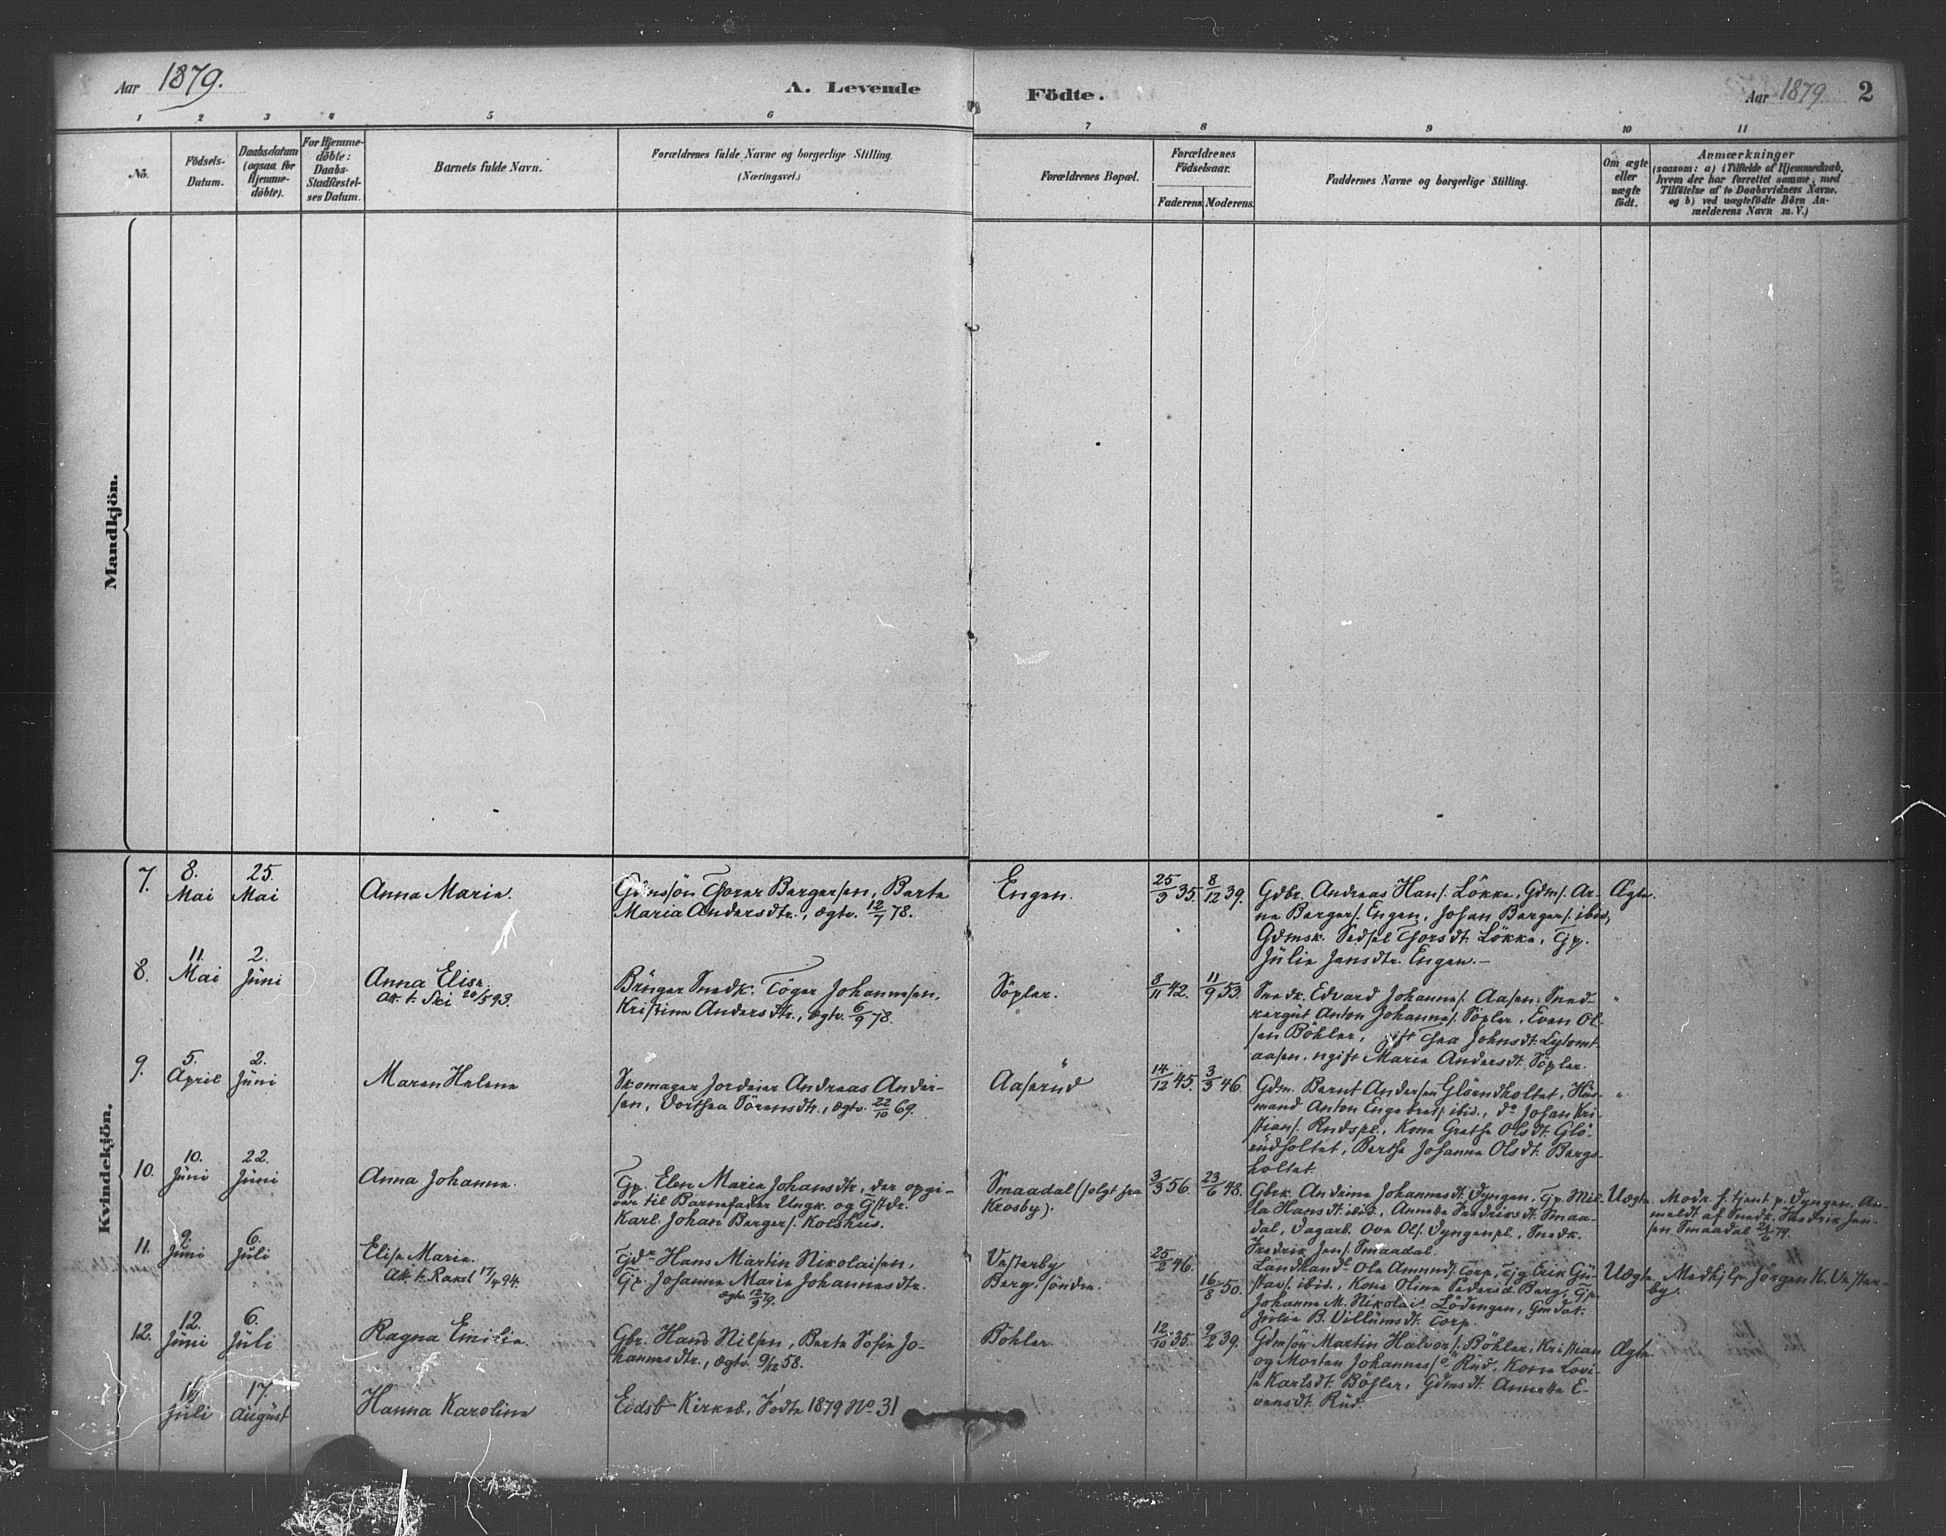 Aar 1879.
A. Levende
Födte.
Aar 1879
2
1 2 3 4 5 6 7 8 9 10 11
No.
Födsels-
Datum.
Daabsdatum
(ogsaa for
Hjemme-
döbte).
For Hjemme-
döbte:
Daabs-
Stadfæstel-
ses Datum.
Barnets fulde Navn.
Forældrenes fulde Navne og borgerlige Stilling
(Næringsvei.)
Forældrenes Bopæl.
Forældrenes
Födselsaar.
Faderens.
Moderens.
Faddernes Navne og borgerlige Stilling.
Om ægte
eller
uægte
födt.
Anmærkninger
(saasom: a) i Tilfælde af Hjemmedaab,
hvem der har forrettet samme, med
Tilföielse af to Daabsvidners Navne.
og b) ved uægtefödte Börn An-
melderens Navn m.V.)
Mandkjön.
Kvindekjön.
7.
8.
Mai
25.
Mai
Anna Marie.
Gdmssön Thorer Bergersen, Berte
Maria Andersdtr., ægtv. 12/7 78.
Engen.
25/3 35.
8/12 39.
Gdbr. Andreas Hans. Løkke, Gdms. Ar-
ne Bergers. Engen, Johan Bergers. ibid,
Gdmsk. Sedsel Thorsdt. Løkke, Gp.
Julie Jensdtr. Engen.—
Ægte.
8.
11.
Mai
2.
Juni
Anna Elise.
Att. t. Ski 20/5 93.
Bruger Snedk. Töger Johannesen,
Kristine Andersdtr., ægtv. 6/9 78.
Söpler.
8/11 42.
11/9 53.
Snedk. Edvard Johannes. Aasen, Sned-
kergut Anton Johannes. Söpler, Even Ol-
sen Böhler, gift Thea Johnsdt.
aasen, ugift Marie Andersdt. Söpler.
"
9.
5.
April
2.
Juni
Maren Helene
Skomager Jordeier Andreas Ander-
sen, Dorthea Sörensdtr., ægtv. 22/10 69.
Aaserud
14/12 45.
3/3 46.
Gdm. Bernt Andersen Glörudholtet, Hus-
mand Anton Engebrets. ibid., do Johan Kri-
stians. Rudspl., Kone Grethe Olsdt. Glö-
rudholtet, Berthe Johanne Olsdt. Bergs-
holtet.
"
10.
10.
Juni
22.
Juni
Anna Johanne.
Gp. Elen Marie Johansdtr., der opgi-
ver til Barnefader Ungk. og Gstdr.
Karl Johan Bergers. Kolshus.
Smaadal (solgt fra
Krosby).
3/3 56.
23/6 48.
Gbrk. Andrine Johannesdt. Dyngen, Gp. Mil-
la Hansdt. ibid., Annette Fredriksdt. Smaa-
dal, Dagarb. Ove Ols. Dyngenpl., Snedk.
Fredrik Jens. Smaadal.
Uægte.
Modr. f. tjent p. Dyngen. An-
meldt af Snedk. Fredrik Jen-
sen Smaadal
11.
9.
Juni
6.
Juli
Elise Marie.
Att. t. Rakst. 17/4 94.
Gdr. Hans Martin Nikolaisen,
Gp. Johanne Marie Johannesdtr.
ægtv. 12/9 79.
Vesterby
Berg, söndre.
25/2 46.
16/8 50.
Landhandl. Ole Amunds. Torp, Tjg. Erik Gu-
stavs. ibid., Kone Oline Pedersd. Berg, Gp.
Johanne M. Nikolais. Lödengen, Gmdat.
Julie B. Villumsdt. Torp.
Uægte.
Medhjlpr. Jörgen K. Vester-
by.
12.
12.
Juni
6.
Juli
Ragna Emilie.
Gbr. Hans Nilsen, Berte Sofie Jo-
hannesdtr., ægtv. 9/12 58.
Böhler.
12/10 35.
9/2 39.
Gdmsön Martin Halvors. Böhler, Kristian
og Morten Johannes. Rud, Kone Lovi-
se Karlsdt. Böhler, Gdmsdt. Annette E-
vensdt. Rud.
Ægte.
16
Juli
17.
August
Hanna Karoline
Eidsb. Kirkeb. Födte 1879 No. 31